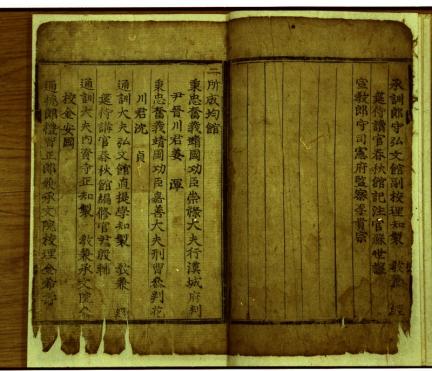 承訓郎守弘文館副校理知製 教兼 經
筵侍講官春秋館記注官蘇世讓
宣教郎守司憲府監察李貫宗
二所成均館
秉忠奮義靖國功臣崇祿大夫行漢城府判
尹晉川君姜 渾
秉忠奮義靖國功臣嘉善大夫刑曹叅判花
川君沈 貞
通訓大夫弘文館直提學知製 教兼 經
筵侍講官春秋館編修官尹殷輔
通訓大夫內資寺正知製 教兼承文院叅
校金安國
通德郎禮曹正郎兼承文院校理金希壽